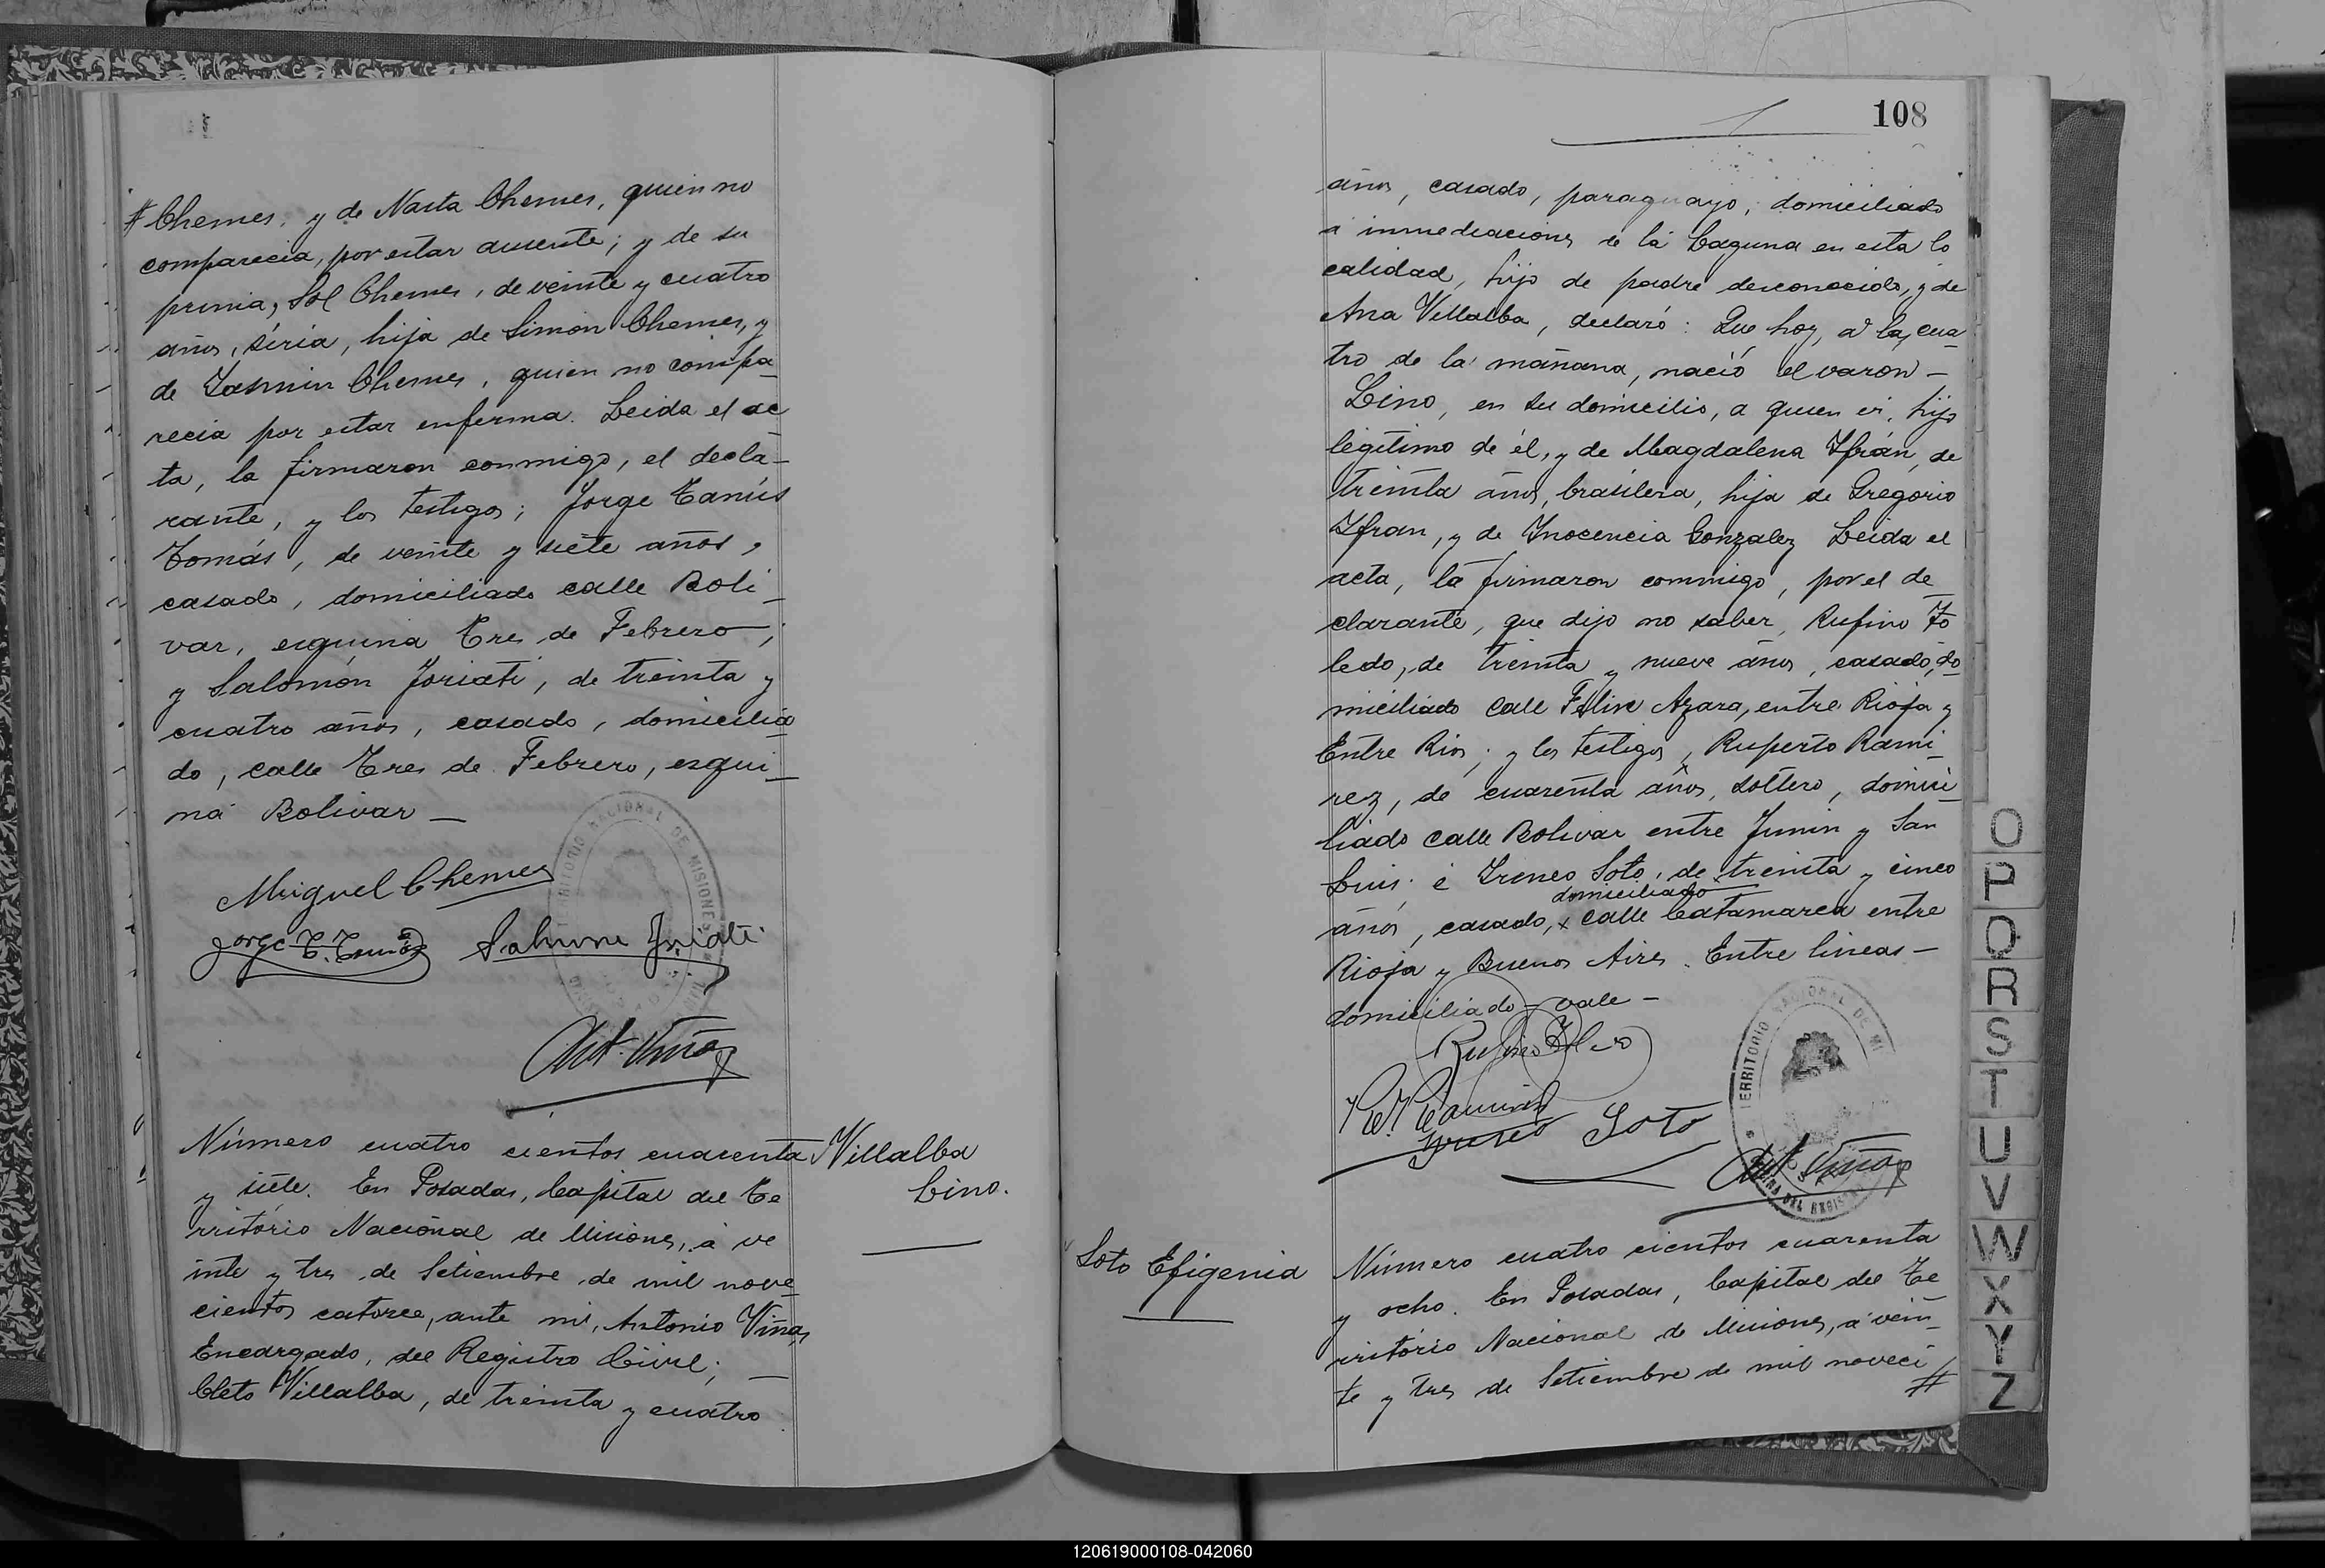 # Chemes, y de Nasta Chemes, quien no
comparecia, por estar ausente; y de su
prima, Sol Chemes, de veinte y cuatro
años, siria, hija de Simon Chemes, y
de Iasmin Chemes, quien no compa
recia por estar enferma. Leida el ac
ta, la firmaron conmigo, el decla-
rante, y los testigos; Jorge Tanús
Tomás, de veinte y siete años,
casado, domiciliado calle Boli-
var, esquina Tres de Febrero,
y Salomón Joriati, de treinta y
cuatro años, casado, domicilia
do, calle Tres de Febrero, esqui-
na Bolivar —
Miguel Chemes
Jorge T.
TERRITORIO NACIONAL DE MISIONES
Ant. Viñas
Número cuatro cientos cuarenta
y siete. En Posadas, Capital del Te
rritório Nacional de Misiones, á ve
inte y tres de Setiembre de mil nove-
cientos catorce, ante mi, Antonio Viñas
Encargado, del Registro Civil; —
Cleto Villalba, de treinta y cuatro
Villalba
Lino.
108
años, casado, paraguayo, domiciliado
á inmediaciones de la Laguna en esta lo
calidad, hijo de padre desconocido, y de
Ana Villalba, declaró: Que hoy, á las cua-
tro de la mañana, nació el varon —
Lino, en su domicilio, a quien es, hijo
legitimo de él, y de Magdalena Ifrán, de
treinta años, brasilera, hija de Gregorio
Ifran, y de Inocencia Gonzalez Leida el
acta, la firmaron conmigo, por el de-
clarante, que dijo no saber, Rufino To
ledo, de treinta y nueve años, casado, do-
miciliado calle Felix Azara, entre Rioja y
Entre Rios; y los testigos, Ruperto Rami-
rez, de cuarenta años, soltero, domici-
liado calle Bolivar entre Junin y San
Luis; é Ireneo Soto, de treinta y cinco
domiciliado
años, casado, x calle Catamarca entre
Rioja y Buenos Aires. Entre lineas —
domiciliado — vale —
Rufino Toledo
R. Ramirez
Ireneo Soto
TERRITORIO NACIONAL DE MI
Ant. Viñas
Soto Efigenia
Número cuatro cientos cuarenta
y ocho. En Posadas, Capital del Te
rritório Nacional de Misiones, á vein-
te y tres de Setiembre de mil noveci
#
O
P
Q
R
S
T
U
V
W
X
Y
Z
120619000108-042060